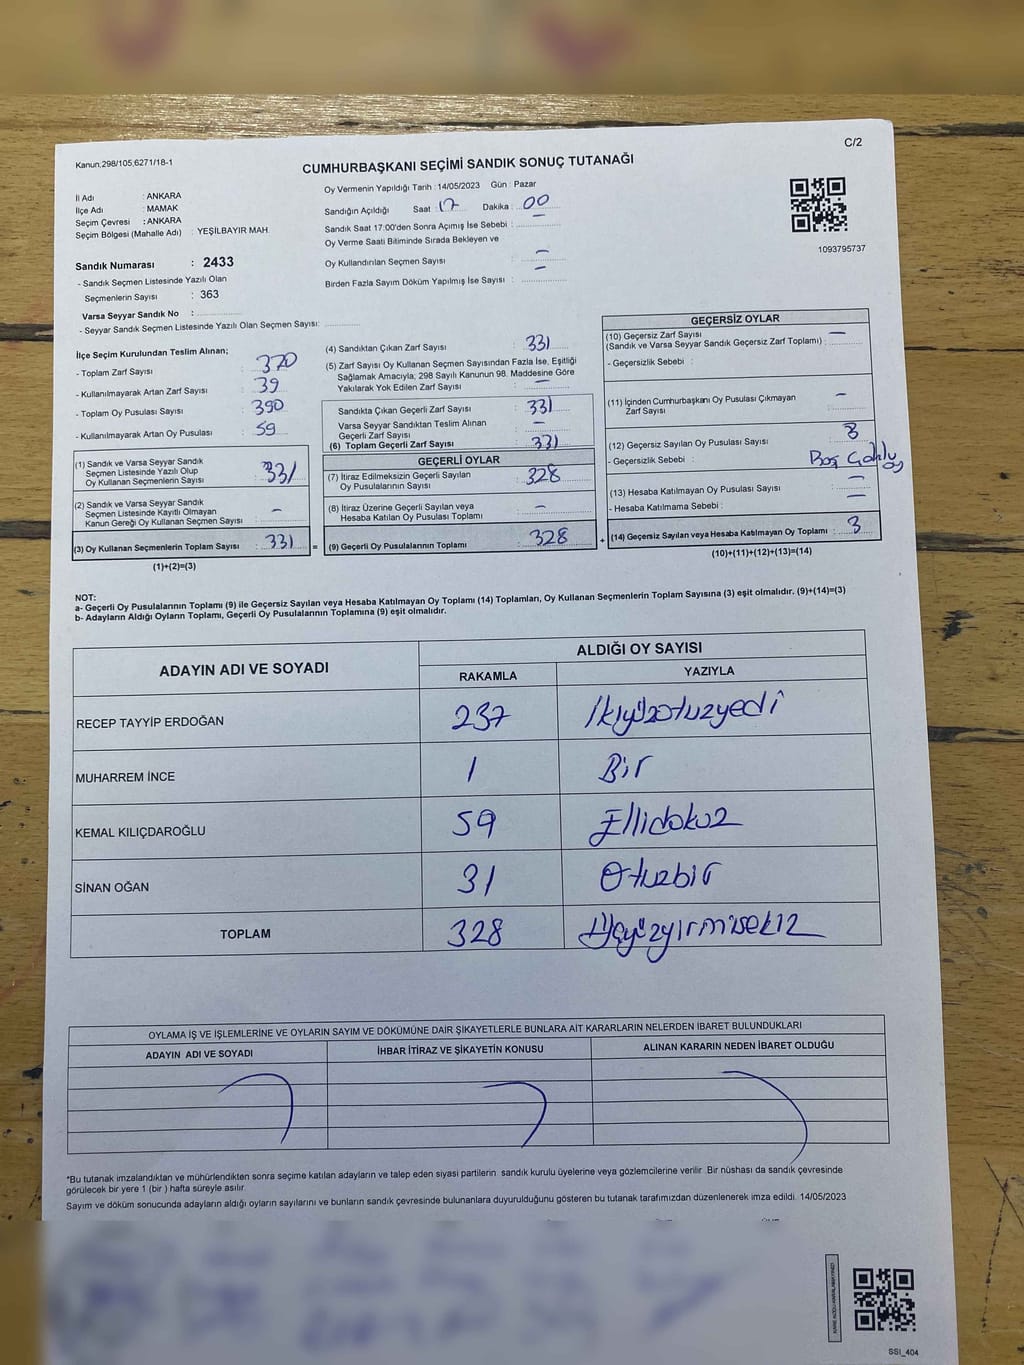 Kanun,298/105,6271/18-1
C/2
CUMHURBAŞKANI SEÇİMİ SANDIK SONUÇ TUTANAĞI
İl Adı : ANKARA
İlçe Adı : MAMAK
Seçim Çevresi : ANKARA
Seçim Bölgesi (Mahalle Adı) : YEŞİLBAYIR MAH.
Sandık Numarası : 2433
- Sandık Seçmen Listesinde Yazılı Olan
Seçmenlerin Sayısı : 363
Varsa Seyyar Sandık No :
- Seyyar Sandık Seçmen Listesinde Yazılı Olan Seçmen Sayısı:
Oy Vermenin Yapıldığı Tarih : 14/05/2023 Gün : Pazar
Sandığın Açıldığı Saat : 17 Dakika : 00
Sandık Saat 17:00'den Sonra Açımış İse Sebebi : —
Oy Verme Saati Bitiminde Sırada Bekleyen ve
Oy Kullandırılan Seçmen Sayısı : —
Birden Fazla Sayım Döküm Yapılmış İse Sayısı : —
1093795737
İlçe Seçim Kurulundan Teslim Alınan;
- Toplam Zarf Sayısı : 370
- Kullanılmayarak Artan Zarf Sayısı : 39
- Toplam Oy Pusulası Sayısı : 390
- Kullanılmayarak Artan Oy Pusulası : 59
(1) Sandık ve Varsa Seyyar Sandık
Seçmen Listesinde Yazılı Olup
Oy Kullanan Seçmenlerin Sayısı : 331
(2) Sandık ve Varsa Seyyar Sandık
Seçmen Listesinde Kayıtlı Olmayan
Kanun Gereği Oy Kullanan Seçmen Sayısı : —
(3) Oy Kullanan Seçmenlerin Toplam Sayısı : 331 =
(1)+(2)=(3)
(4) Sandıktan Çıkan Zarf Sayısı : 331
(5) Zarf Sayısı Oy Kullanan Seçmen Sayısından Fazla İse, Eşitliği
Sağlamak Amacıyla; 298 Sayılı Kanunun 98. Maddesine Göre
Yakılarak Yok Edilen Zarf Sayısı : —
Sandıkta Çıkan Geçerli Zarf Sayısı : 331
Varsa Seyyar Sandıktan Teslim Alınan
Geçerli Zarf Sayısı : —
(6) Toplam Geçerli Zarf Sayısı : 331
GEÇERLİ OYLAR
(7) İtiraz Edilmeksizin Geçerli Sayılan
Oy Pusulalarının Sayısı : 328
(8) İtiraz Üzerine Geçerli Sayılan veya
Hesaba Katılan Oy Pusulası Toplamı : —
(9) Geçerli Oy Pusulalarının Toplamı : 328 +
GEÇERSİZ OYLAR
(10) Geçersiz Zarf Sayısı
(Sandık ve Varsa Seyyar Sandık Geçersiz Zarf Toplamı) : —
- Geçersizlik Sebebi :
(11) İçinden Cumhurbaşkanı Oy Pusulası Çıkmayan
Zarf Sayısı : —
(12) Geçersiz Sayılan Oy Pusulası Sayısı : 3
- Geçersizlik Sebebi : Boş Çoklu
oy
(13) Hesaba Katılmayan Oy Pusulası Sayısı : —
- Hesaba Katılmama Sebebi : —
(14) Geçersiz Sayılan veya Hesaba Katılmayan Oy Toplamı : 3
(10)+(11)+(12)+(13)=(14)
NOT:
a- Geçerli Oy Pusulalarının Toplamı (9) ile Geçersiz Sayılan veya Hesaba Katılmayan Oy Toplamı (14) Toplamları, Oy Kullanan Seçmenlerin Toplam Sayısına (3) eşit olmalıdır. (9)+(14)=(3)
b- Adayların Aldığı Oyların Toplamı, Geçerli Oy Pusulalarının Toplamına (9) eşit olmalıdır.
ADAYIN ADI VE SOYADI ALDIĞI OY SAYISI
RAKAMLA YAZIYLA
RECEP TAYYİP ERDOĞAN 237 İkiyüzotuzyedi
MUHARREM İNCE 1 Bir
KEMAL KILIÇDAROĞLU 59 Ellidokuz
SİNAN OĞAN 31 Otuzbir
TOPLAM 328 Üçyüzyirmisekiz
OYLAMA İŞ VE İŞLEMLERİNE VE OYLARIN SAYIM VE DÖKÜMÜNE DAİR ŞİKAYETLERLE BUNLARA AİT KARARLARIN NELERDEN İBARET BULUNDUKLARI
ADAYIN ADI VE SOYADI İHBAR İTİRAZ VE ŞİKAYETİN KONUSU ALINAN KARARIN NEDEN İBARET OLDUĞU
*Bu tutanak imzalandıktan ve mühürlendikten sonra seçime katılan adayların ve talep eden siyasi partilerin sandık kurulu üyelerine veya gözlemcilerine verilir. Bir nüshası da sandık çevresinde
görülecek bir yere 1 (bir ) hafta süreyle asılır.
Sayım ve döküm sonucunda adayların aldığı oyların sayılarını ve bunların sandık çevresinde bulunanlara duyurulduğunu gösteren bu tutanak tarafımızdan düzenlenerek imza edildi. 14/05/2023
SSİ_404